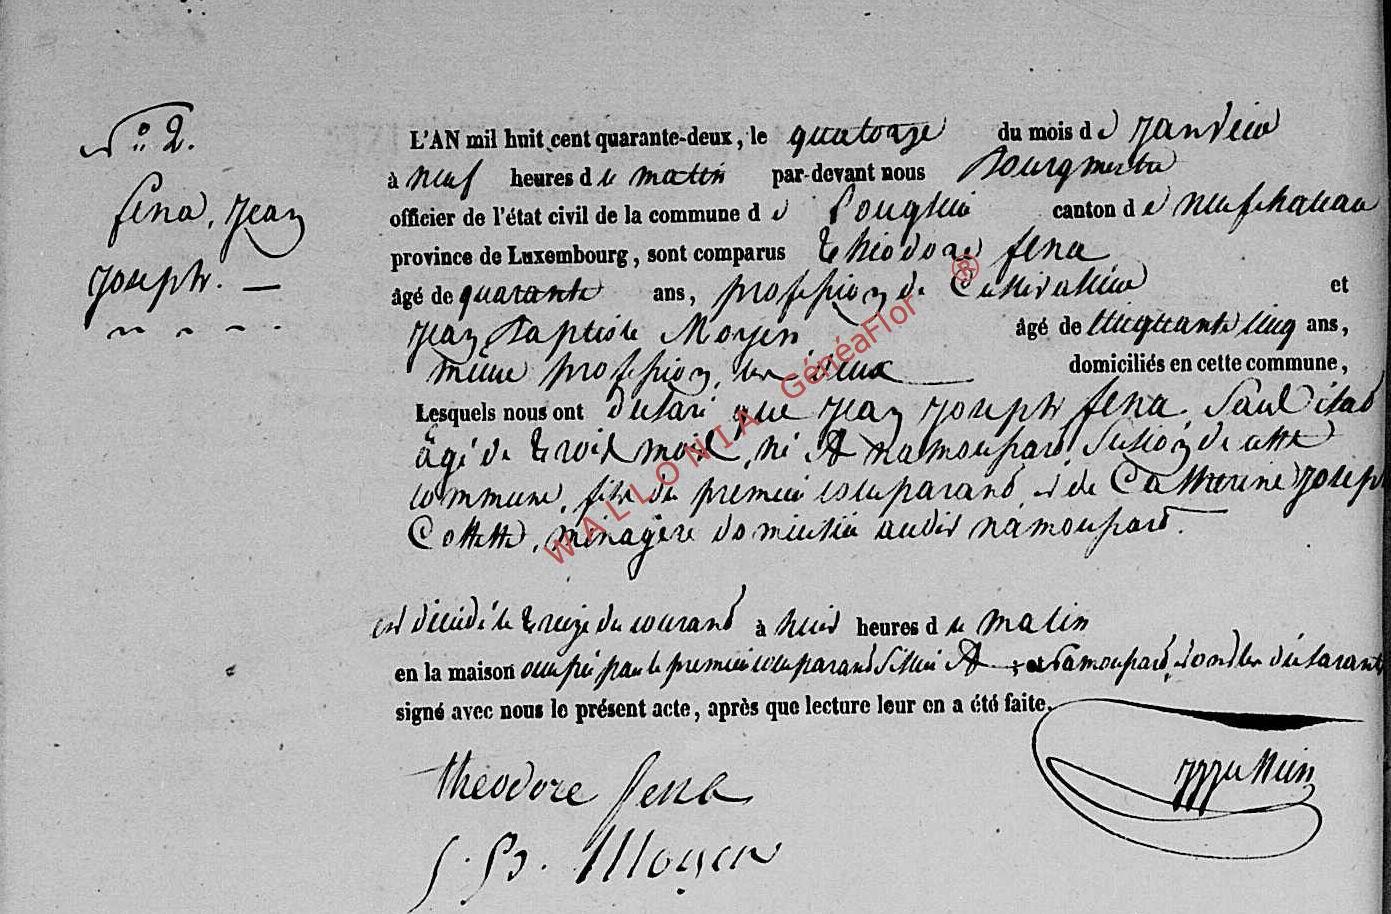 N° 2.
fena, Jean
Joseph. —
L'AN mil huit cent quarante-deux, le quatorze du mois de Janvier
à neuf heures d le matin par-devant nous Bourgmestre
officier de l'état civil de la commune d e canton d e neufchateau
province de Luxembourg, sont comparus théodore fena
âgé de quarante ans, profession de Cultivateur et
Jean Baptiste Moyen âgé de cinquante cinq ans,
même profession, les deux domiciliés en cette commune,
Lesquels nous ont déclaré que Jean Joseph fena
âgé de trois mois, né à namoupard Section de cette
commune, fils du premier comparand et de Catherine Joseph
Collette, ménagère domiciliée audit namoupard.
est décédé le treize du courand à huit heures d le matin
en la maison occupée par le premier comparand située à namoupard, et ont les déclarants
signé avec nous le présent acte, après que lecture leur en a été faite.
théodore fena
J. B. Moyen
WALLONIA GénéaFlor ®